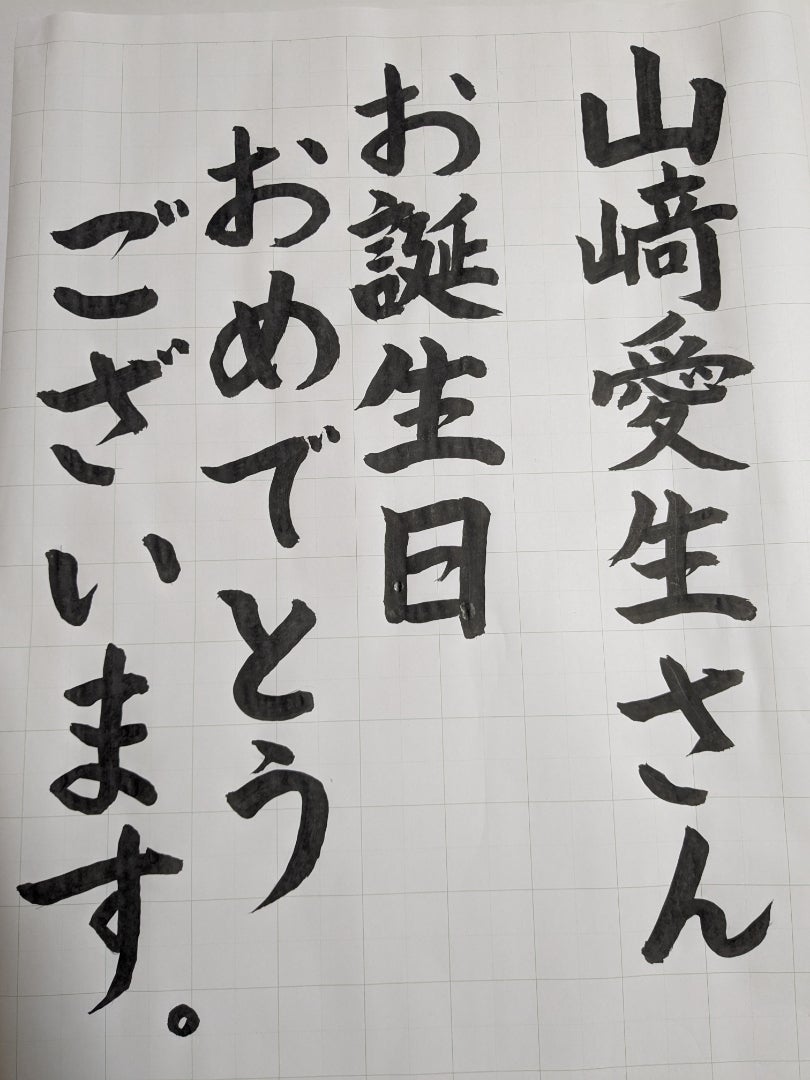 山﨑愛生さん
お誕生日
おめでとう
ございます。